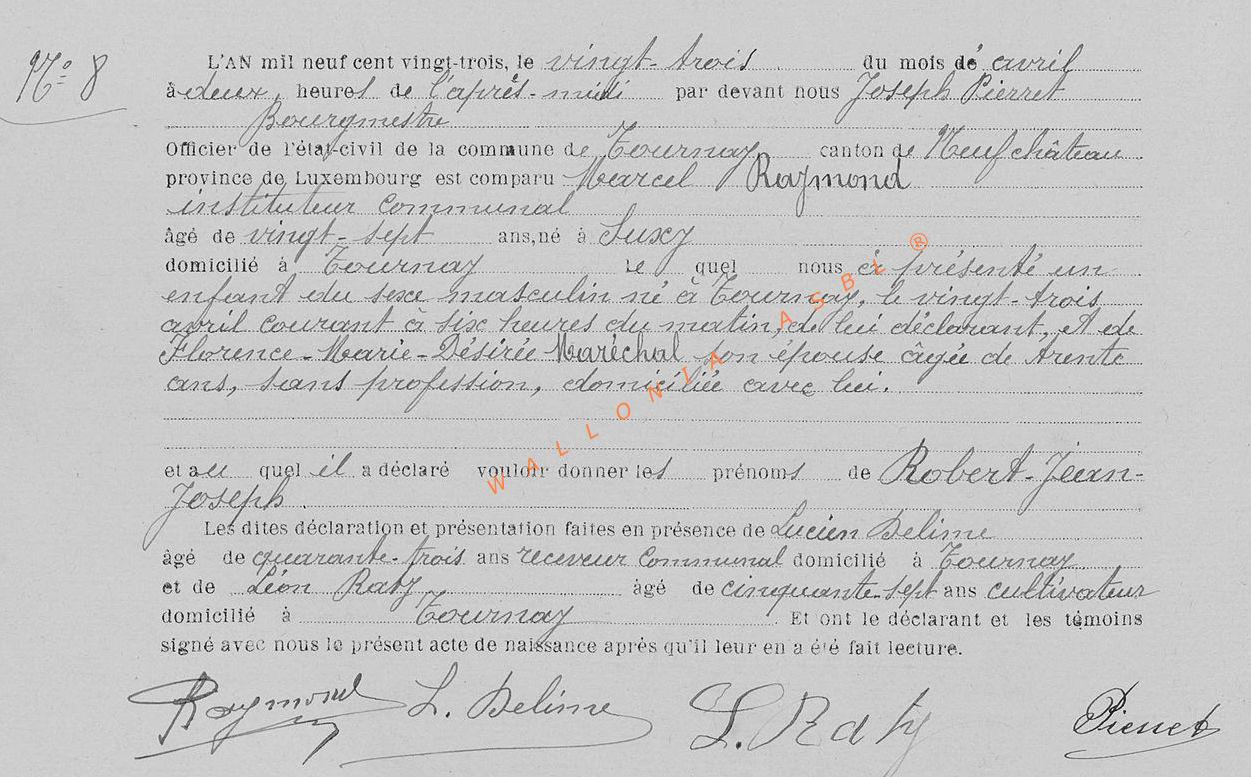 N° 8
L'AN mil neuf cent vingt-trois, le vingt-trois du mois de avril
à deux heures de l'après-midi par devant nous Joseph Pierret
Bourgmestre
Officier de l'état-civil de la commune de Tournay canton de Neufchâteau
province de Luxembourg est comparu Marcel Raymond
instituteur communal
âgé de vingt-sept ans, né à Suxy
domicilié à Tournay le quel nous a présenté un
enfant du sexe masculin né à Tournay, le vingt-trois
avril courant à six heures du matin, de lui déclarant, et de
Florence-Marie-Désirée Maréchal son épouse âgée de trente
ans, sans profession, domiciliée avec lui.
et au quel il a déclaré vouloir donner les prénoms de Robert-Jean-
Joseph.
Les dites déclaration et présentation faites en présence de Lucien Delime
âgé de quarante-trois ans receveur communal domicilié à Tournay
et de Léon Raty âgé de cinquante-sept ans cultivateur
domicilié à Tournay. Et ont le déclarant et les témoins
signé avec nous le présent acte de naissance après qu'il leur en a été fait lecture.
Raymond L. Delime L. Raty Pierret
WALLONIA ASBL ®